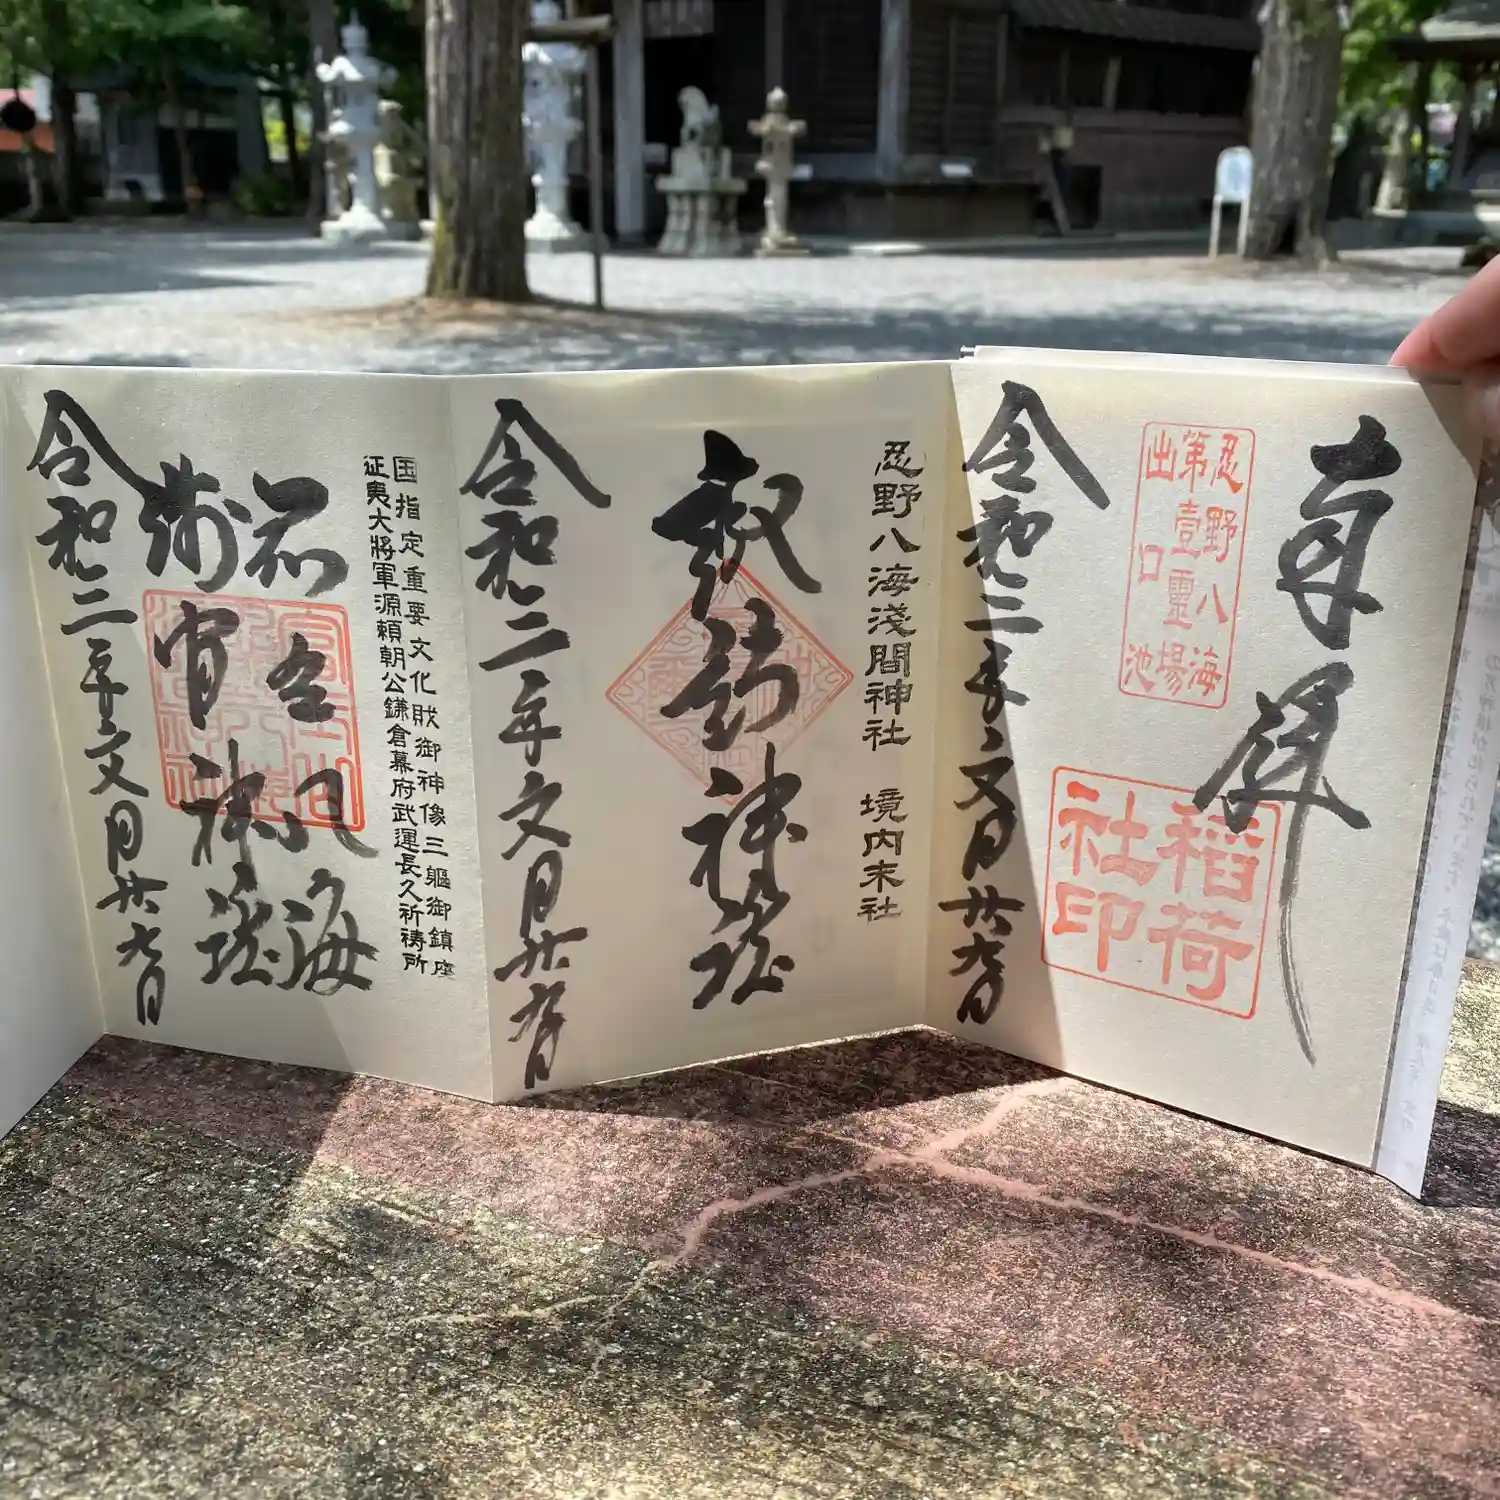 奉拝
忍野八海
第壹靈場
出口池
稲荷
社印
令和二年文月廿九日
忍野八海淺間神社 境内末社
神社
令和二年文月廿九日
国指定重要文化財御神像三軀御鎮座
征夷大將軍源頼朝公鎌倉幕府武運長久祈祷所
忍野八海
浅間神社
令和二年文月廿九日